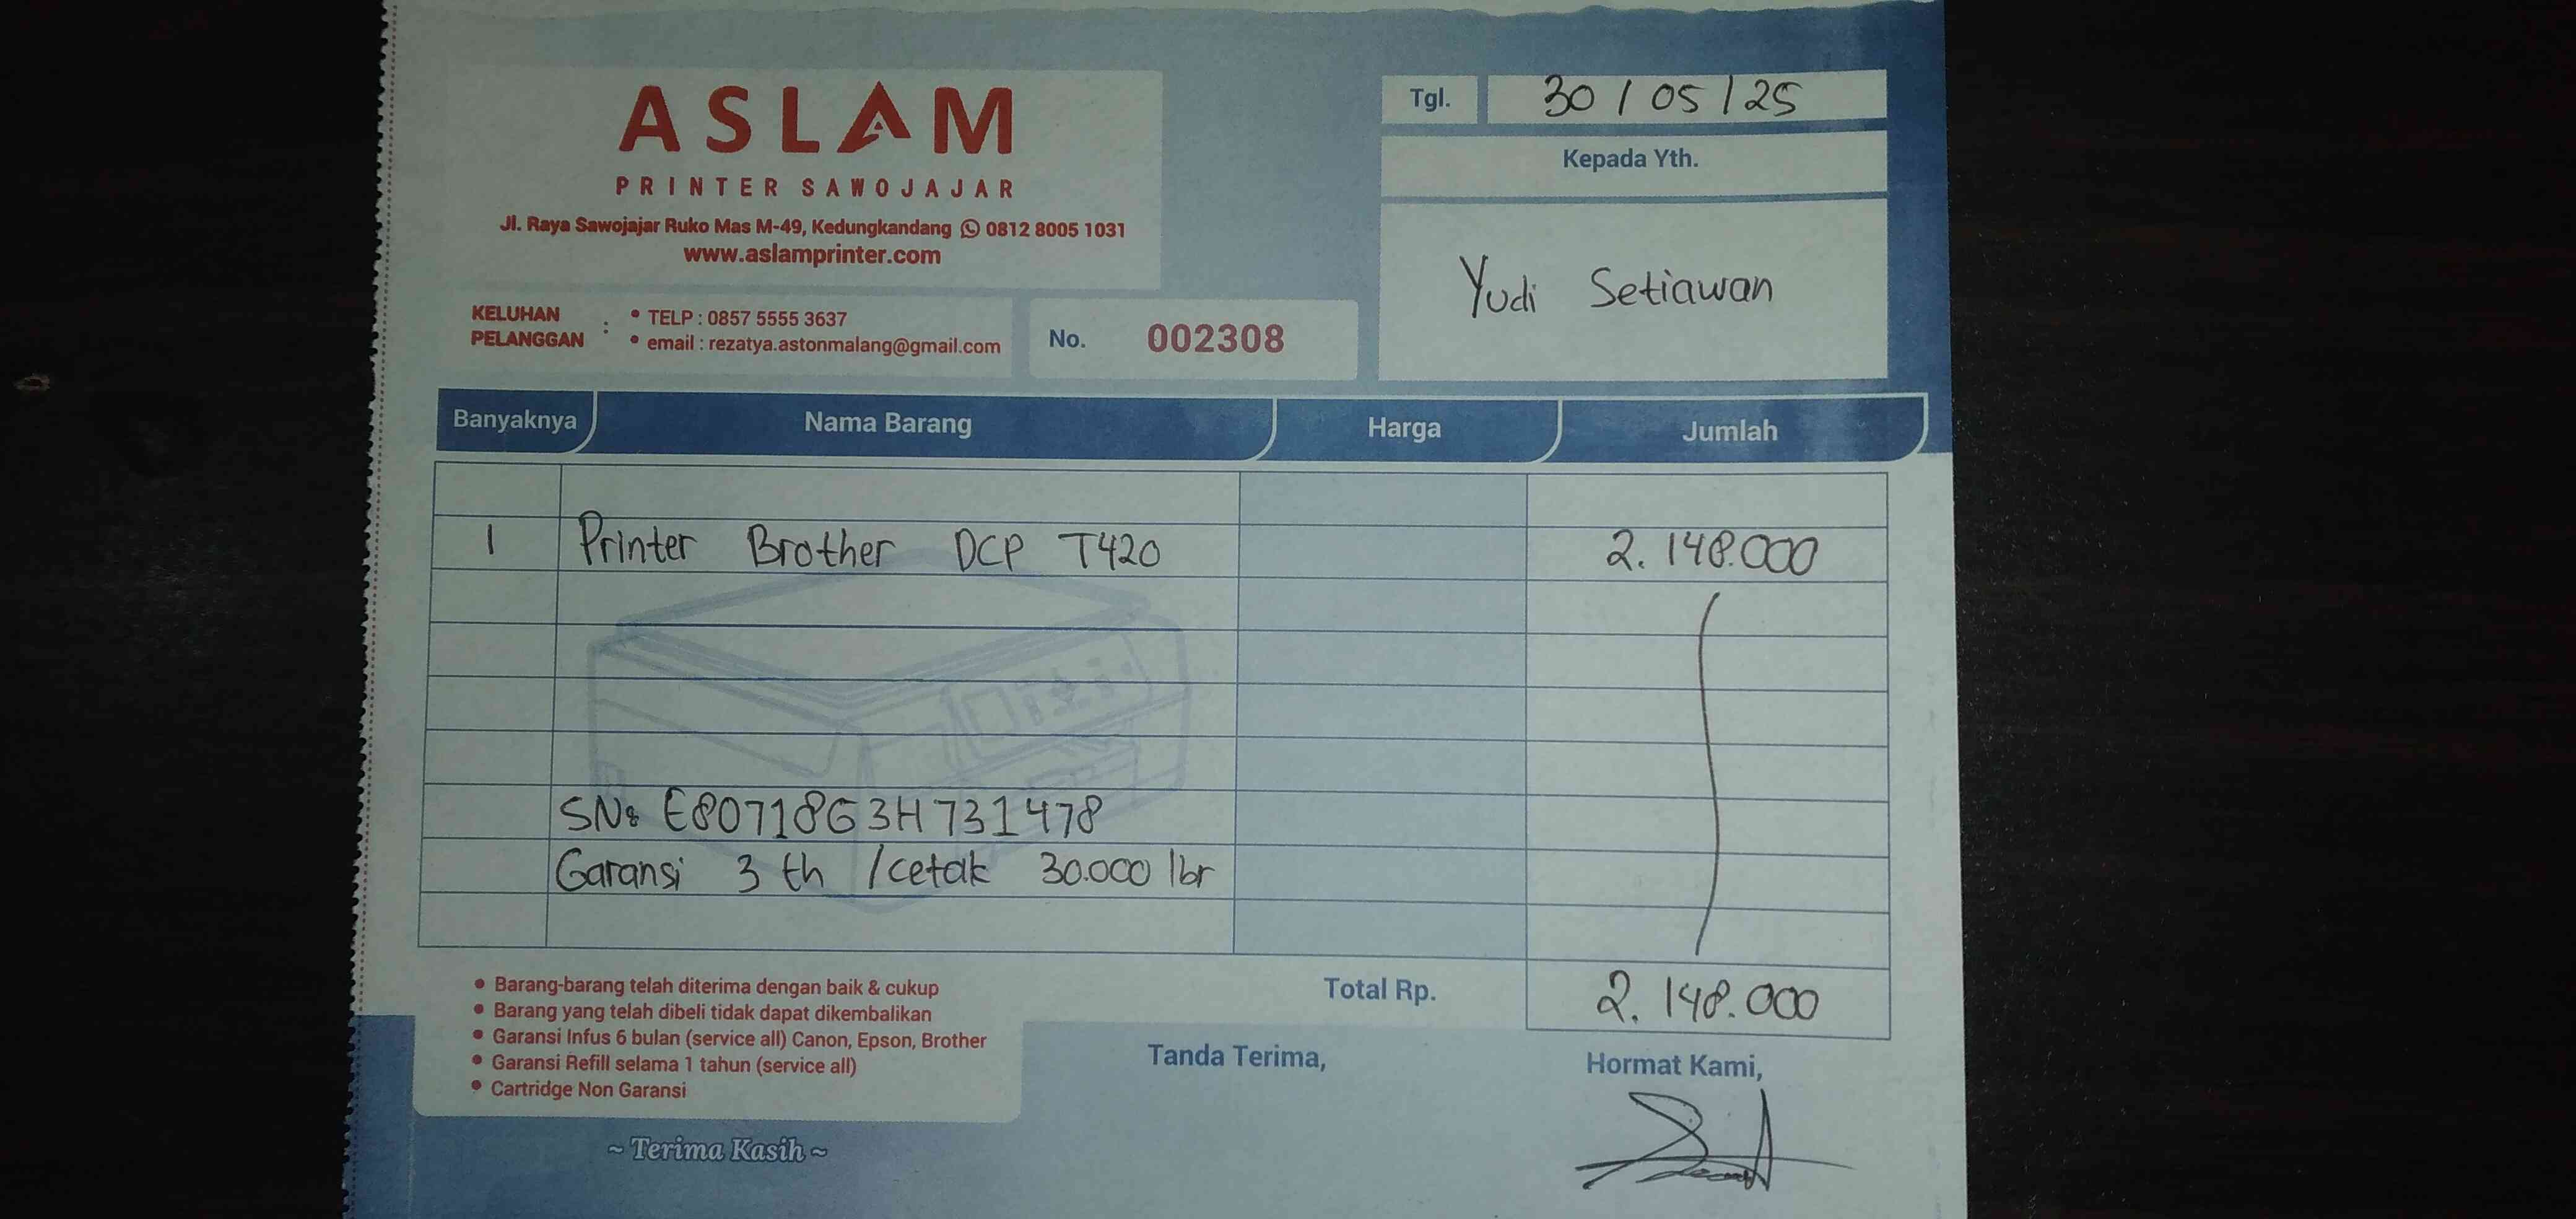 ASLAM
PRINTER SAWOJAJAR
Jl. Raya Sawojajar Ruko Mas M-49, Kedungkandang 0812 8005 1031
www.aslamprinter.com
KELUHAN PELANGGAN :
• TELP : 0857 5555 3637
• email : rezatya.astonmalang@gmail.com
No. 002308
Tgl. 30 / 05 / 25
Kepada Yth.
Yudi Setiawan
Banyaknya Nama Barang Harga Jumlah
1 Printer Brother DCP T420 2.148.000
SN: E80718G3H731478
Garansi 3 th /cetak 30.000 lbr
Total Rp. 2.148.000
• Barang-barang telah diterima dengan baik & cukup
• Barang yang telah dibeli tidak dapat dikembalikan
• Garansi Infus 6 bulan (service all) Canon, Epson, Brother
• Garansi Refill selama 1 tahun (service all)
• Cartridge Non Garansi
Tanda Terima,
Hormat Kami,
~ Terima Kasih ~